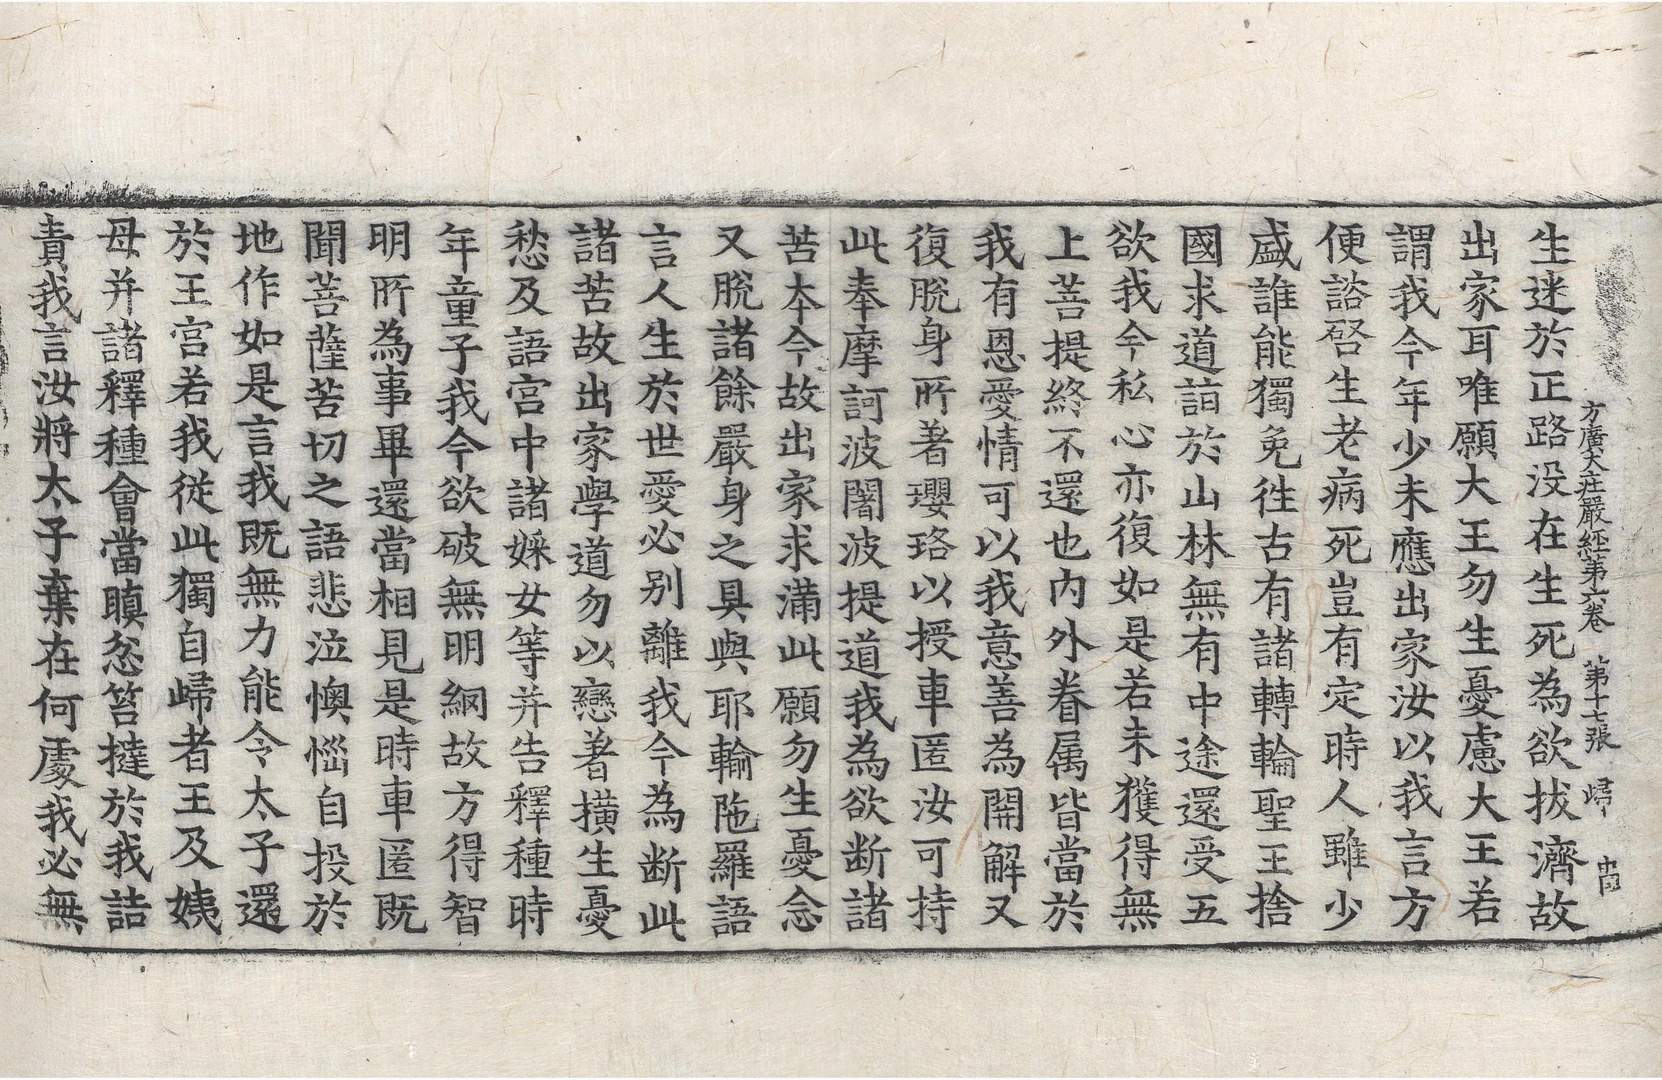 方廣大莊嚴經第六卷 第十七張 歸
生迷於正路没在生死為欲拔濟故
出家耳唯願大王勿生憂慮大王若
謂我今年少未應出家汝以我言方
便諮啓生老病死豈有定時人雖少
盛誰能獨免徃古有諸轉輪聖王捨
國求道詣於山林無有中途還受五
欲我今私心亦復如是若未獲得無
上菩提終不還也内外眷属皆當於
我有恩愛情可以我意善為開解又
復脫身所著瓔珞以授車匿汝可持
此奉摩訶波闍波提道我為欲断諸
苦本今故出家求滿此願勿生憂念
又脫諸餘嚴身之具與耶輸陁羅語
言人生於世愛必別離我今為断此
諸苦故出家學道勿以戀著横生憂
愁及語宮中諸婇女等并告釋種時
年童子我今欲破無明網故方得智
明所為事畢還當相見是時車匿既
聞菩薩苦切之語悲泣懊惱自投於
地作如是言我既無力能令太子還
於王宮若我從此獨自歸者王及姨
母并諸釋種會當瞋忿笞撻於我詰
責我言汝將太子棄在何處我必無